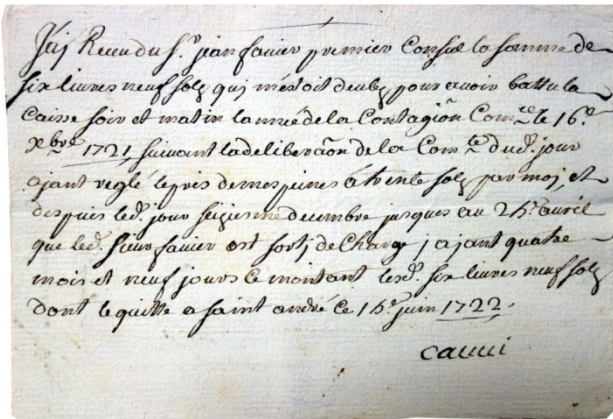 J'ay Receu du Sr. jean favier premier Consul la somme de
six livres neuf solz qui m'estoit deubz pour avoir battu la
caisse soir et matin la nué de la Contagiõn Com.ce le 16e.
Xbre. 1721, suivant la deliberaõn de la Com.te dud. jour
ajant reglé le prix de mes peines á trente solz par moj, et
despuies led. jour seizieme decembre jusques au 25e. avril
que led. sieur favier est sortj de Charge j ajant quatre
mois et neuf jours ce montant lesd. six livres neuf solz
dont le quitte a saint andré ce 15e. juin 1722.